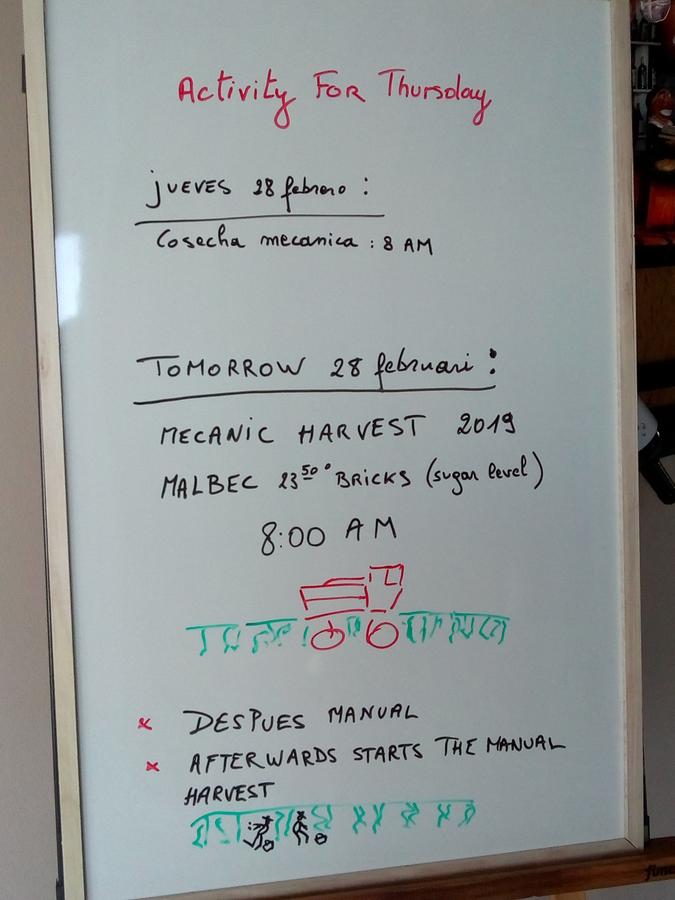 Activity For Thursday
jUEVES 28 febrero :
Cosecha mecanica : 8 AM
TOMORROW 28 februari :
MECANIC HARVEST 2019
MALBEC 23⁵⁰° BRICKS (sugar level)
8:00 AM
× DESPUES MANUAL
× AFTERWARDS STARTS THE MANUAL
HARVEST